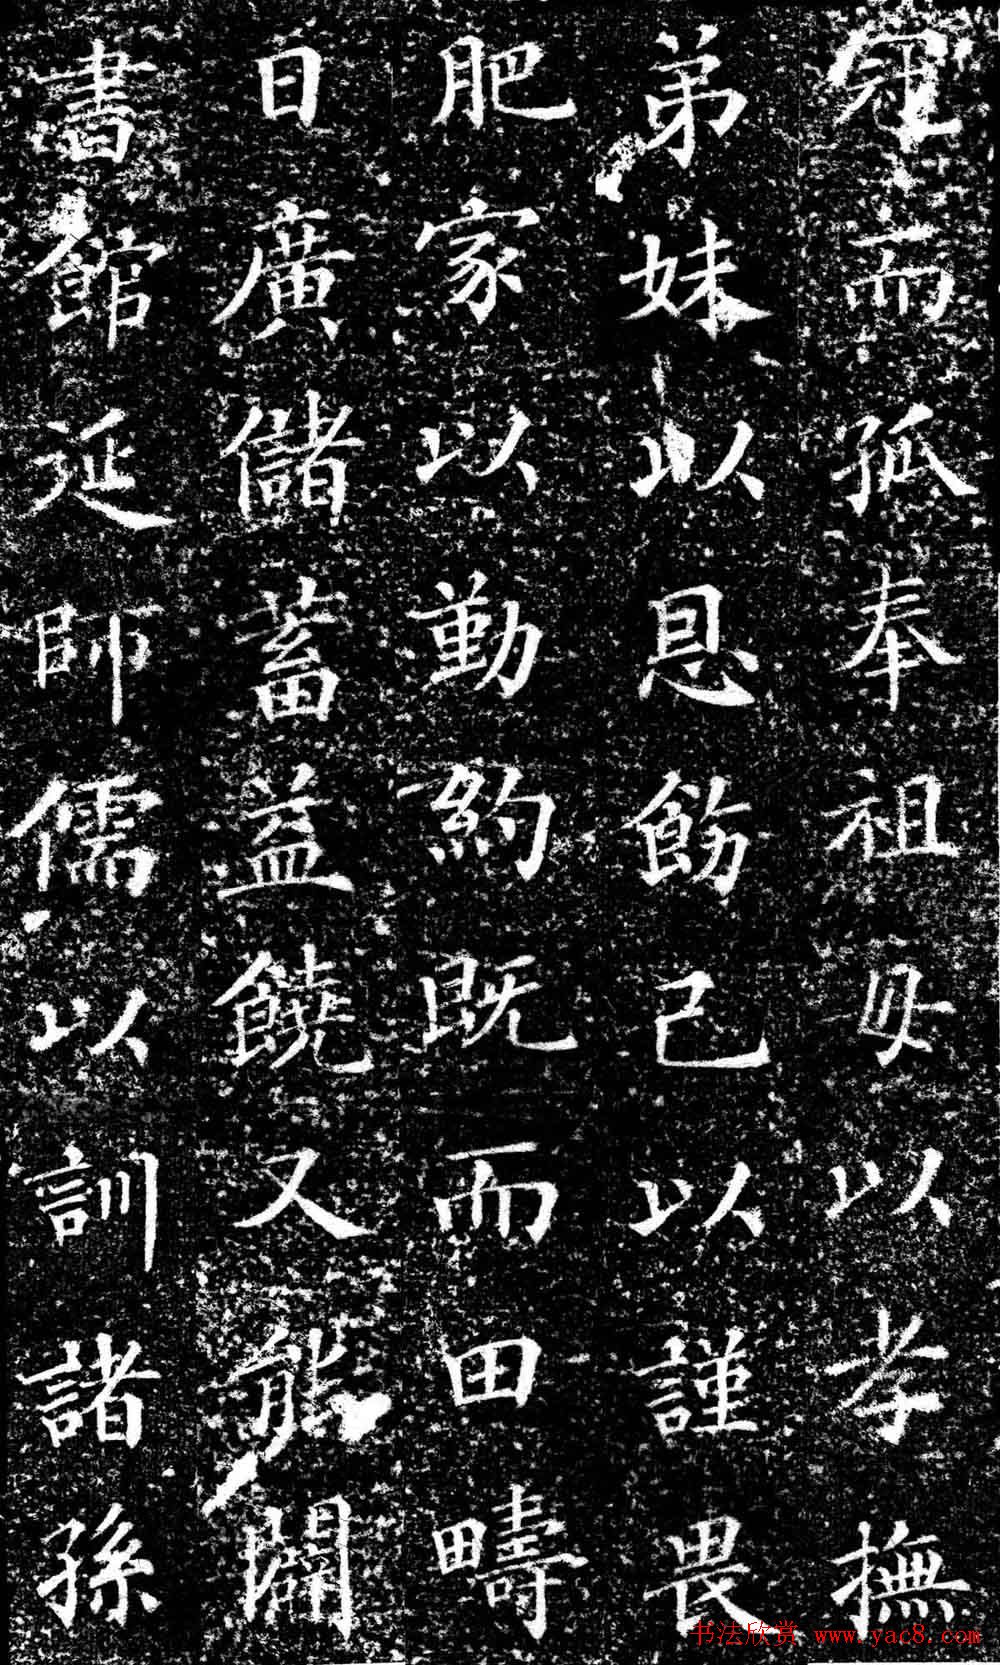 冠而孤奉祖母以孝撫
弟妹以恩飭己以謹畏
肥家以勤約既而田疇
日廣儲蓄益饒又能闢
書館延師儒以訓諸孫
书法欣赏 www.yac8.com